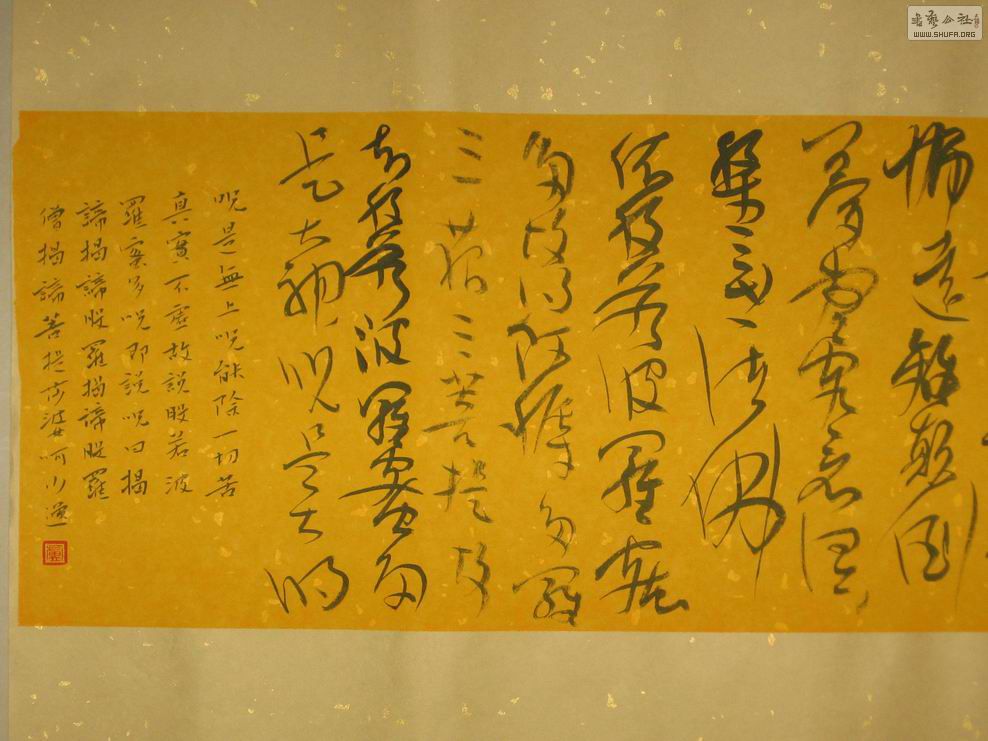 怖遠離顛倒
夢想究竟涅
槃三世諸佛
依般若波羅蜜
多故得阿耨多羅
三藐三菩提故
知般若波羅蜜多
是大神咒是大明
呪是無上呪能除一切苦
真實不虛故說般若波
羅蜜多呪即說呪曰揭
諦揭諦般羅揭諦般羅
僧揭諦菩提莎婆呵
書藝公社
WWW.SHUFA.ORG